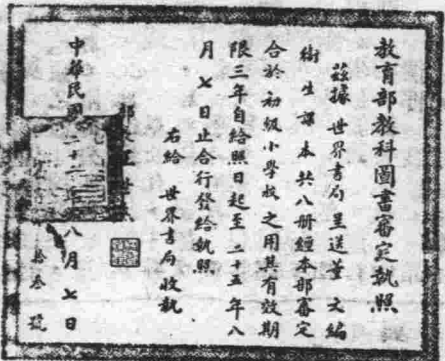 教育部教科圖書審定執照
茲據世界書局呈送董文編
衛生課本共八册經本部審定
合於初級小學校之用其有效期
限三年自給照日起至二十五年八
月七日止合行發給執照
右給世界書局收執
部長王世
中華民國二十二八月七日
拾叁號